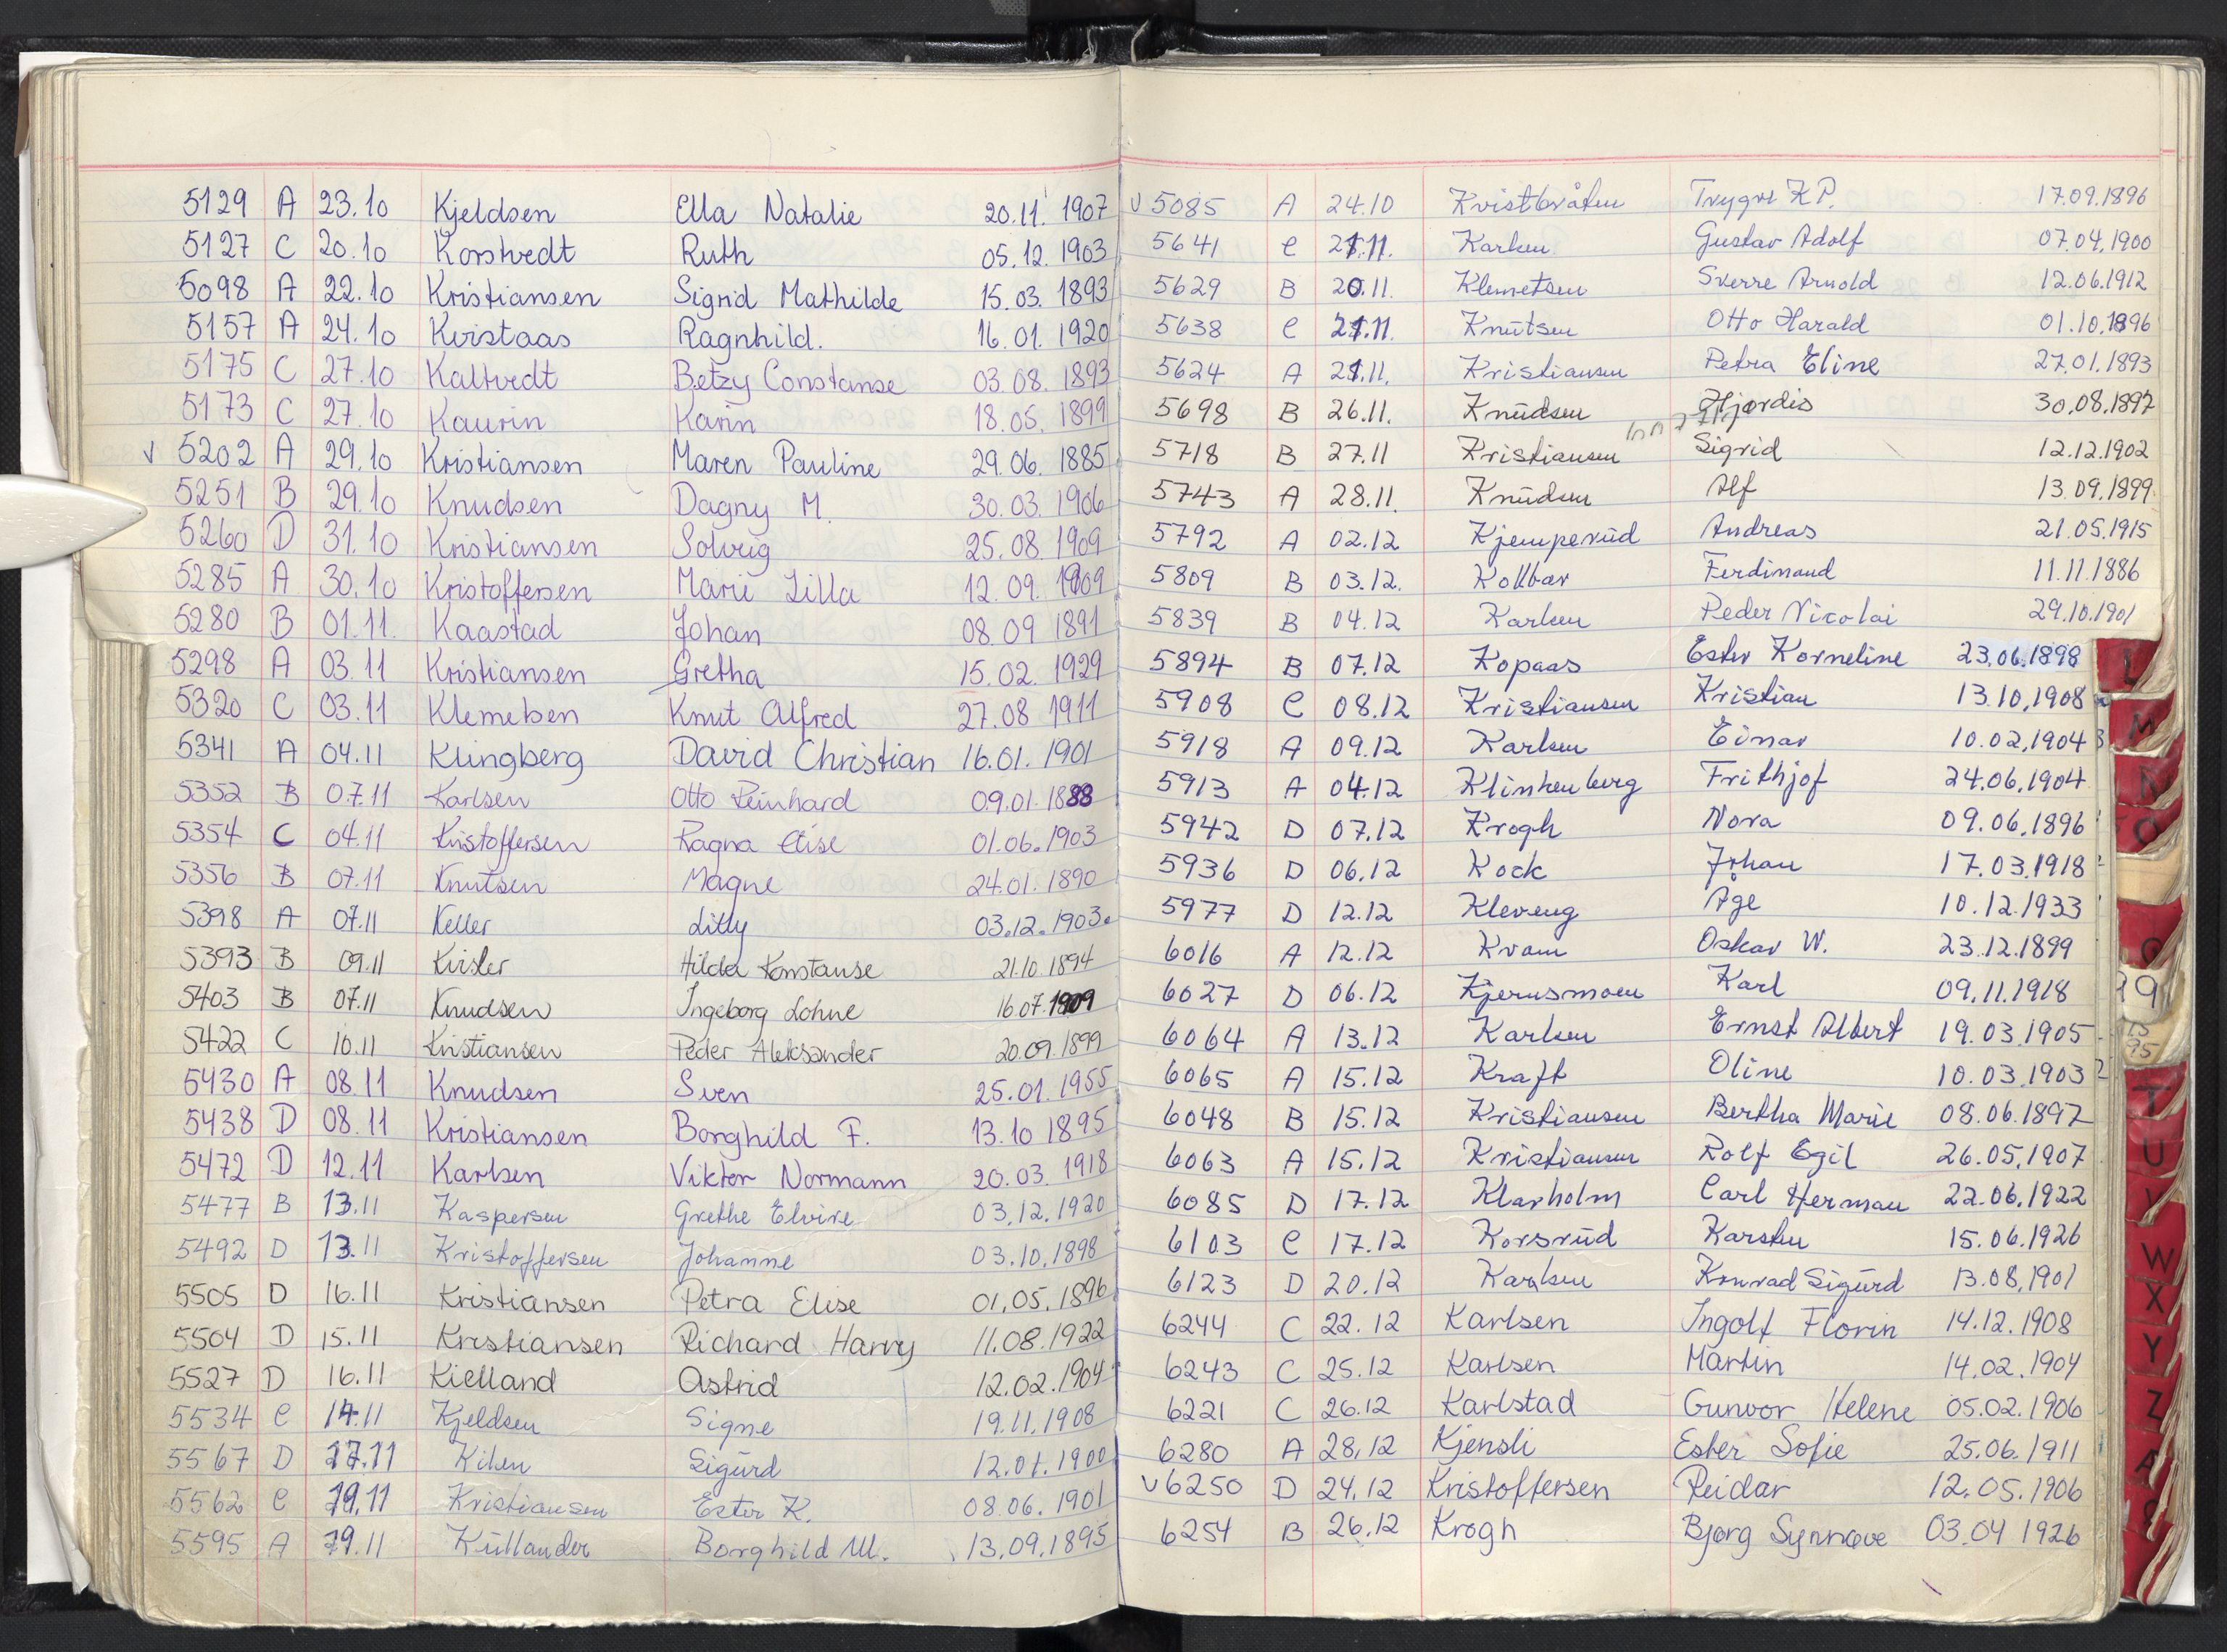 5129 A 23.10 Kjeldsen Ella Natalie 20.11.1907
5127 C 20.10 Korstvedt Ruth 05.12.1903
5098 A 22.10 Kristiansen Sigrid Mathilde 15.03.1893
5157 A 24.10 Kvistaas Ragnhild. 16.01.1920
5175 C 27.10 Kaltvedt Betzy Constanse 03.08.1893
5173 C 27.10 Kaurin Karin 18.05.1899
v 5202 A 29.10 Kristiansen Maren Pauline 29.06.1885
5251 B 29.10 Knudsen Dagny M. 30.03.1906
5260 D 31.10 Kristiansen Solveig 25.08.1909
5285 A 30.10 Kristoffersen Marie Lilla 12.09.1909
5280 B 01.11. Kaastad Johan 08.09 1891
5298 A 03.11 Kristiansen Gretha 15.02.1929
5320 C 03.11 Klemetsen Knut Alfred 27.08 1911
5341 A 04.11 Klingberg David Christian 16.01.1901
5352 B 07.11 Karlsen Otto Reinhard 09.01.1888
5354 C 04.11 Kristoffersen Ragna Elise 01.06.1903
5356 B 07.11 Knutsen Magne 24.01.1890
5398 A 07.11 Keller Lilly 03.12.1903.
5393 B 09.11 Hilda Konstanse 21.10.1894
5403 B 07.11 Knudsen Ingeborg Lohne 16.07.1909
5422 C 10.11 Kristiansen Peder Aleksander 20.09.1899
5430 A 08.11 Knudsen Sven 25.01.1955
5438 D 08.11 Kristiansen Borghild F. 13.10 1895
5472 D 12.11 Karlsen Viktor Normann 20.03.1918
5477 B 13.11 Kaspersen Grethe Elvire 03.12.1920
5492 D 13.11 Kristoffersen Johanne 03.10.1898
5505 D 16.11 Kristiansen Petra Elise 01.05.1896
5504 D 15.11 Kristiansen Richard Harry 11.08.1922
5527 D 16.11 Kielland Astrid 12.02.1904
5534 C 14.11 Kjeldsen Signe 19.11.1908
5567 D 17.11 Kilen Sigurd 12.01.1900
5562 C 19.11 Kristiansen Ester K. 08.06.1901
5595 A 19.11 Küllander Borghild M. 13.09.1895
v 5085 A 24.10 Kvistbråten Trygve K P. 17.09.1896
5641 C 21.11. Karlsen Gustav Adolf 07.04.1900
5629 B 20.11. Klemetsen Sverre Arnold 12.06.1912
5638 C 21.11. Knutsen Otto Harald 01.10.1896
5624 A 21.11. Kristiansen Petra Eline 27.01.1893
5698 B 26.11. Knudsen Hjørdis 30.08.1897
5718 B 27.11 Kristiansen Sigrid 12.12.1902
5743 A 28.11. Knudsen Alf 13.09.1899
5792 A 02.12 Kjemperud Andreas 21.05.1915
5809 B 03.12. Kollbær Ferdinand 11.11.1886
5839 B 04.12 Karlsen Peder Nicolai 29.10.1901
5894 B 07.12 Kopaas Ester Korneline 23.06.1898
5908 C 08.12 Kristiansen Kristian 13.10.1908
5918 A 09.12 Karlsen Einar 10.02.1904
5913 A 04.12 Klinkenberg Frithjof 24.06.1904
5942 D 07.12 Krogh Nora 09.06.1896
5936 D 06.12 Kock Johan 17.03.1918
5977 D 12.12 Kleveng Åge 10.12.1933
6016 A 12.12 Kvam Oskar W. 23.12.1899
6027 D 06.12 Kjernsmoen Karl 09.11.1918
6064 A 13.12 Karlsen Ernst Albert 19.03.1905
6065 A 15.12 Kraft Oline 10.03.1903
6048 B 15.12 Kristiansen Bertha Marie 08.06.1897
6063 A 15.12 Kristiansen Rolf Egil 26.05.1907
6085 D 17.12 Klarholm Carl Herman 22.06.1922
6103 C 17.12 Korsrud Karsten 15.06.1926
6123 D 20.12 Karlsen Konrad Sigurd 13.08.1901
6244 C 22.12 Karlsen Ingolf Florin 14.12.1908
6243 C 25.12 Karlsen Martin 14.02.1904
6221 C 26.12 Karlstad Gunvor Helene 05.02.1906
6280 A 28.12 Kjensli Ester Sofie 25.06.1911
v 6250 D 24.12 Kristoffersen Reidar 12.05.1906
6254 B 26.12 Krogh Bjørg Synnøve 03.04 1926
L
M
N
O
T
U
V
W
X
Y
Z